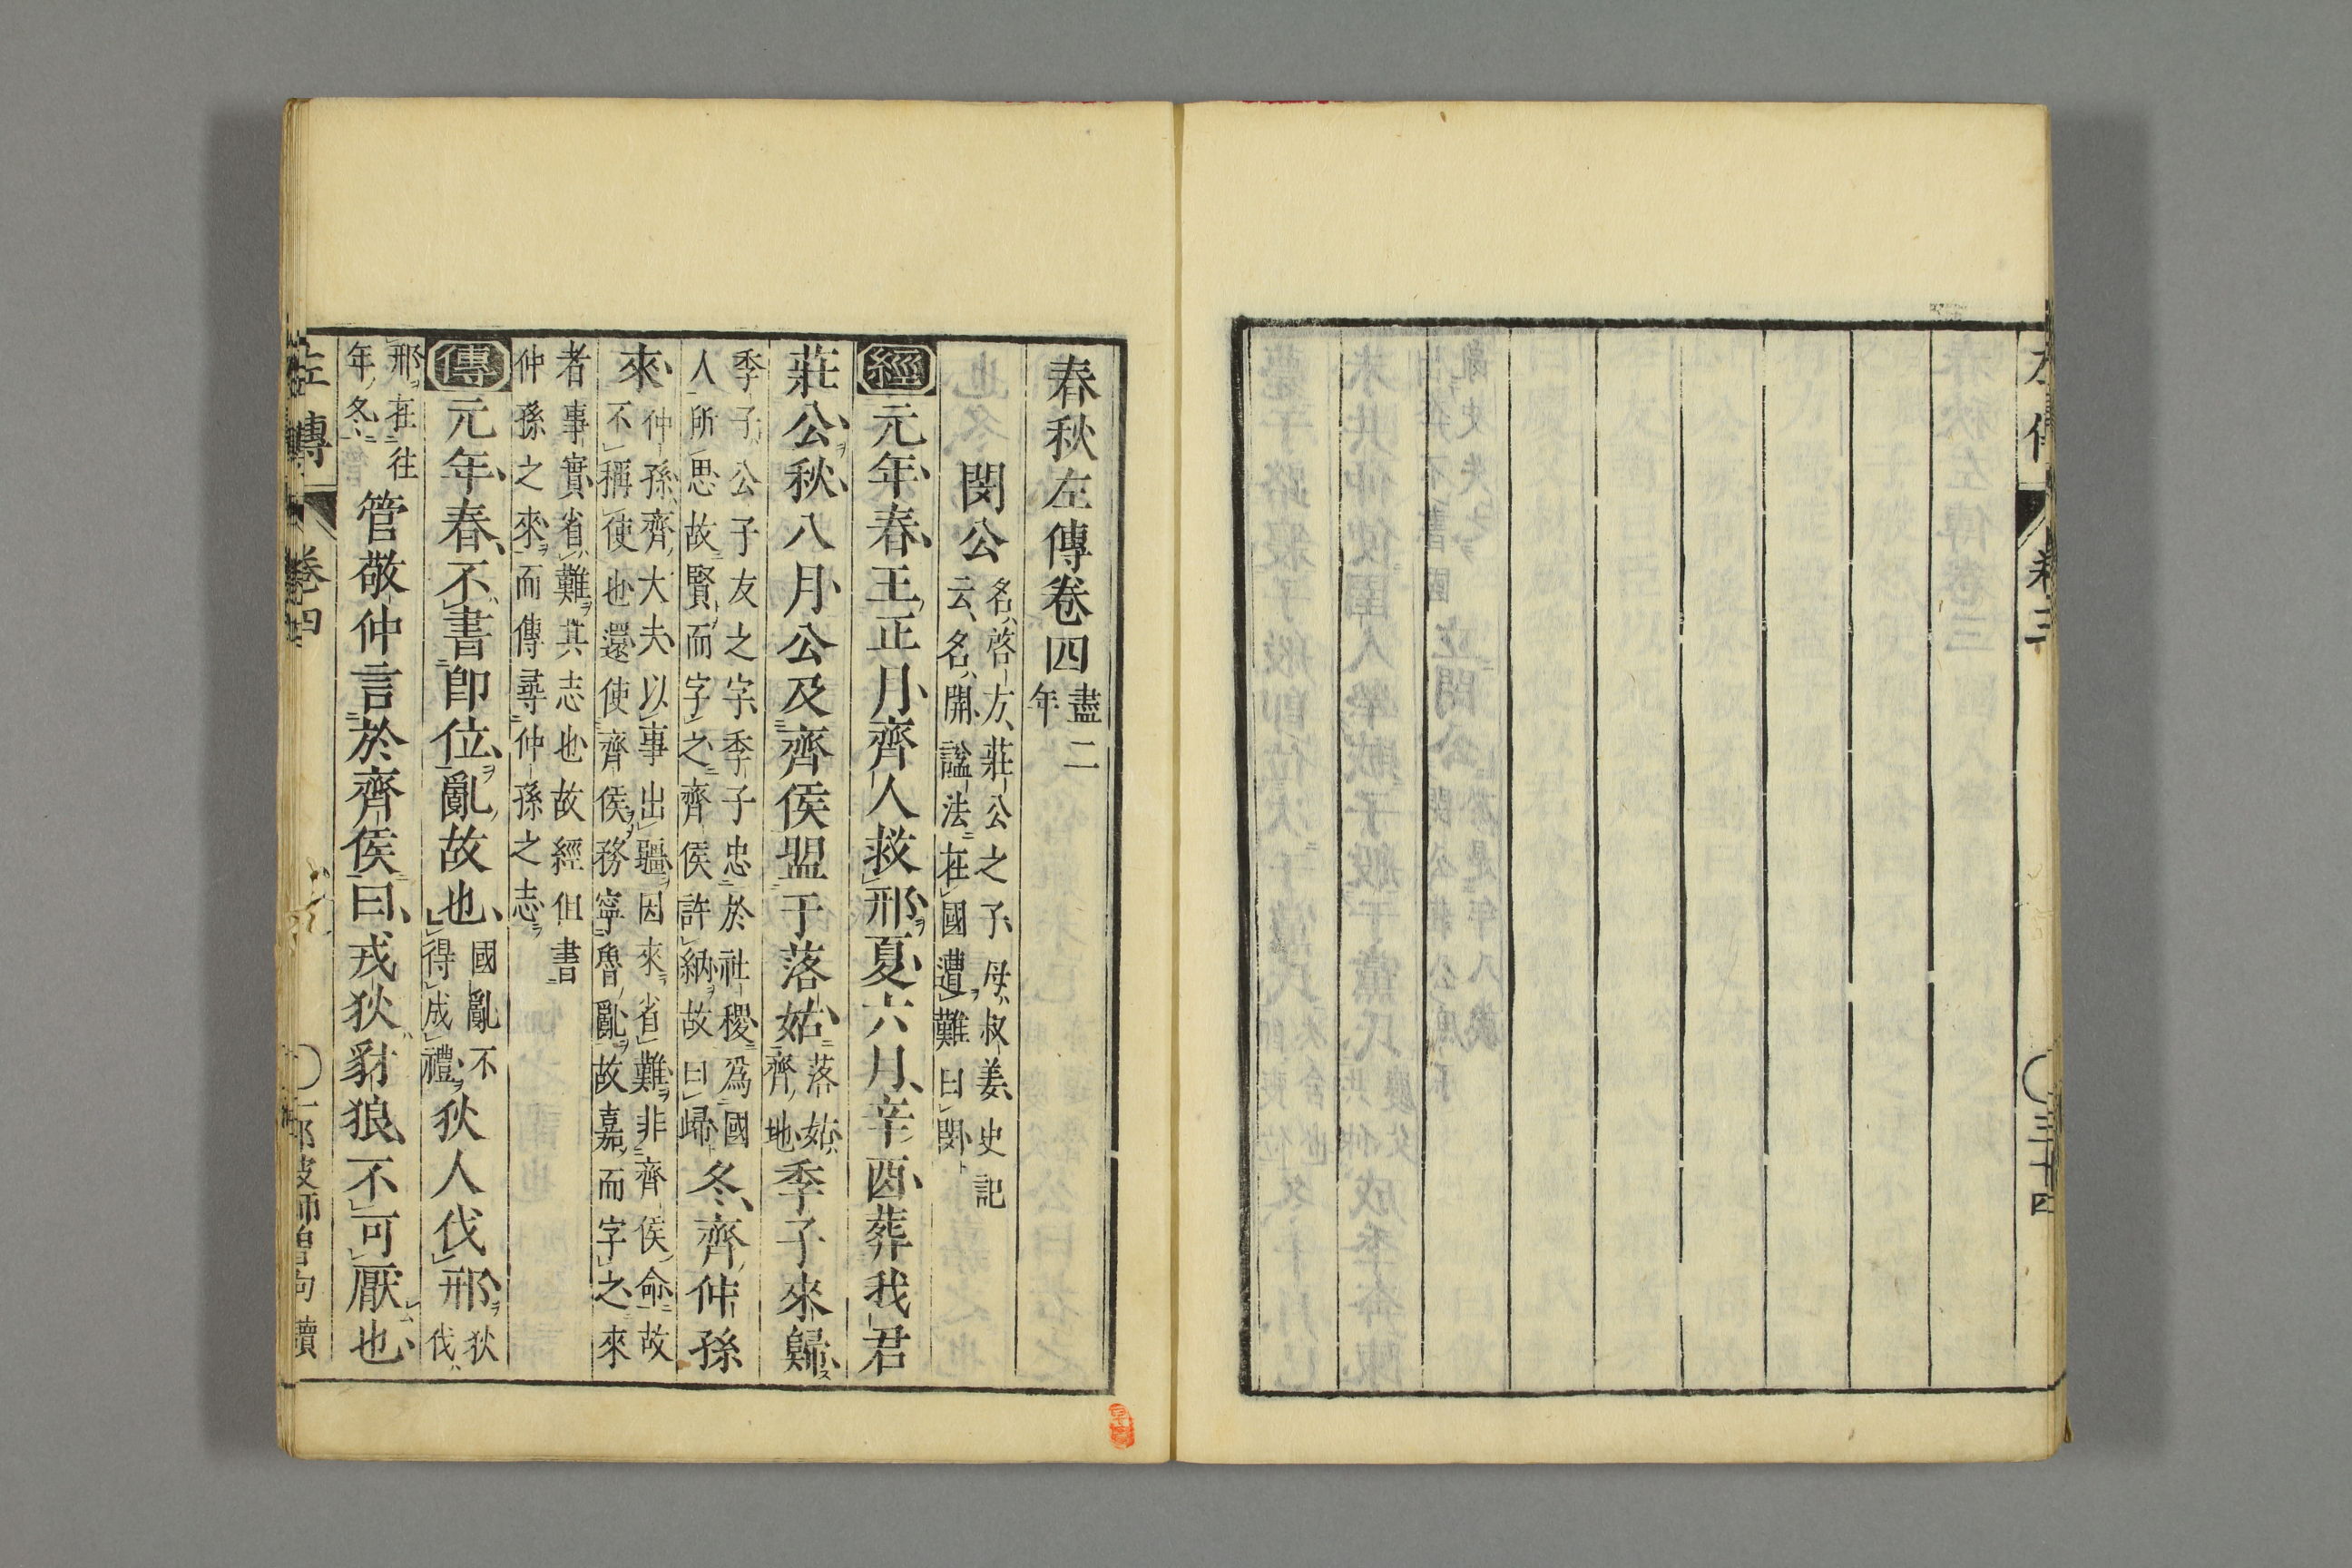 春秋左傳卷四盡二年
閔公名啓方莊公之子母叔姜史記云名開諡法在國遭難曰閔
經元年春王正月齊人救邢夏六月辛酉葬我君
莊公秋八月公及齊侯盟于落姑落姑齊地季子來歸
季子公子友之字季子忠於社稷爲國人所思故賢而字之齊侯許納故曰歸冬齊仲孫
來仲孫齊大夫以事出疆因來省難非齊侯命故不稱使也還使齊侯務寧魯亂故嘉而字之來
者事實省難其志也故經但書仲孫之來而傳尋仲孫之志
傳元年春不書卽位亂故也國亂不得成禮狄人伐邢狄伐
邢在往年冬管敬仲言於齊侯曰戎狄豺狼不可厭也
左傳 卷四
卷三 三十四